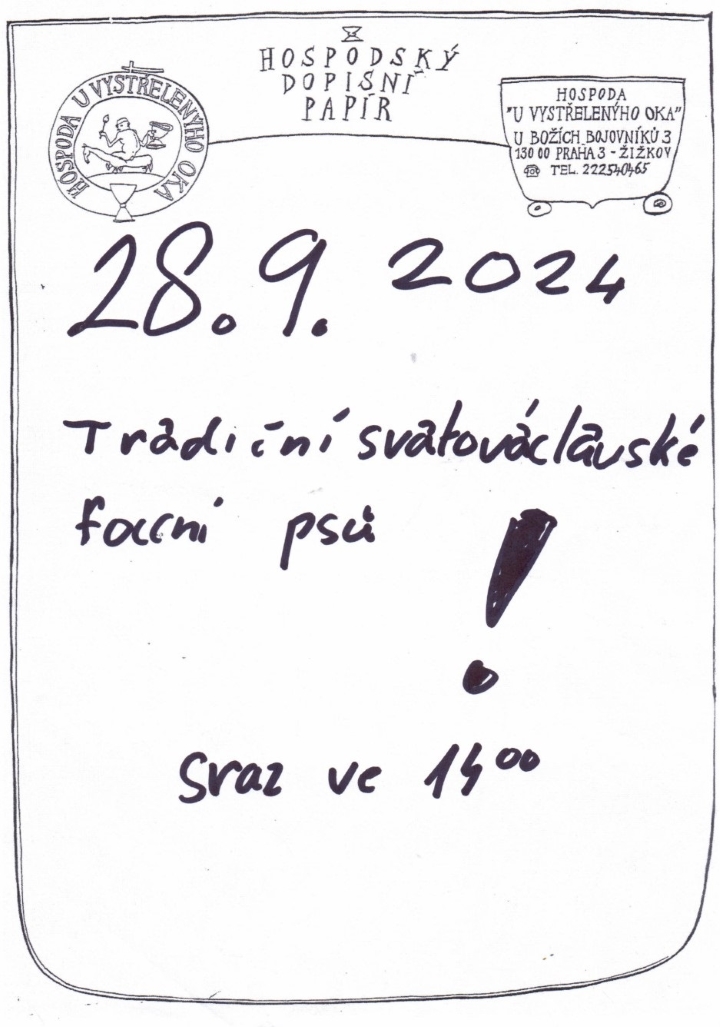 HOSPODSKÝ
DOPISNÍ
PAPÍR
HOSPODA U VYSTŘELENÝHO OKA
HOSPODA
"U VYSTŘELENÝHO OKA"
U BOŽÍCH BOJOVNÍKŮ 3
130 00 PRAHA 3 - ŽIŽKOV
TEL. 222540465
28. 9. 2024
Tradiční svatováclavské
focení psů
!
Sraz ve 14⁰⁰